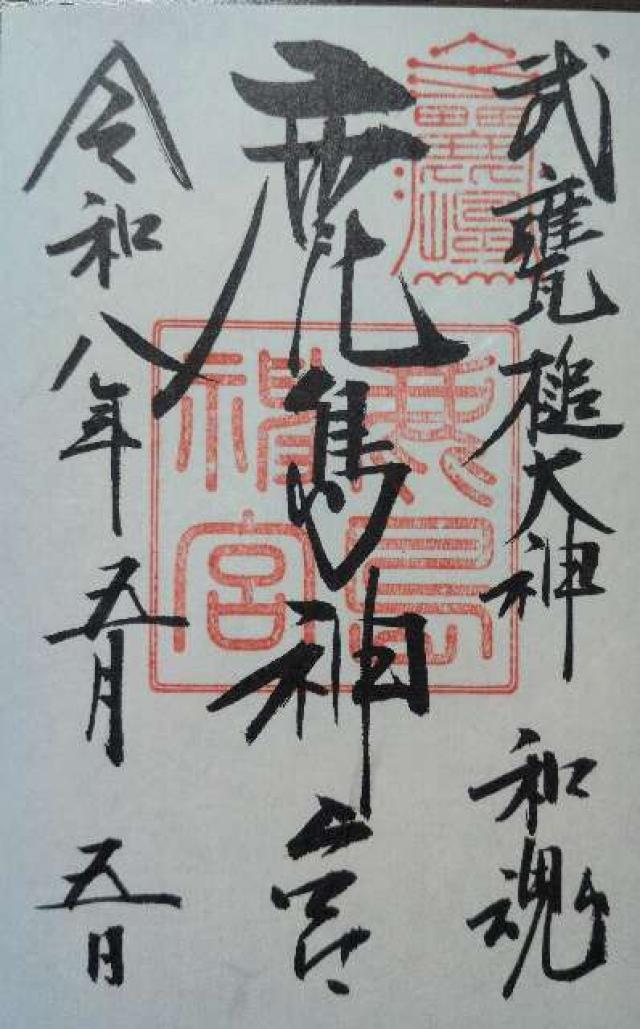 武甕槌大神 和魂
鹿島神宮
令和八年五月五日
鹿島
神宮